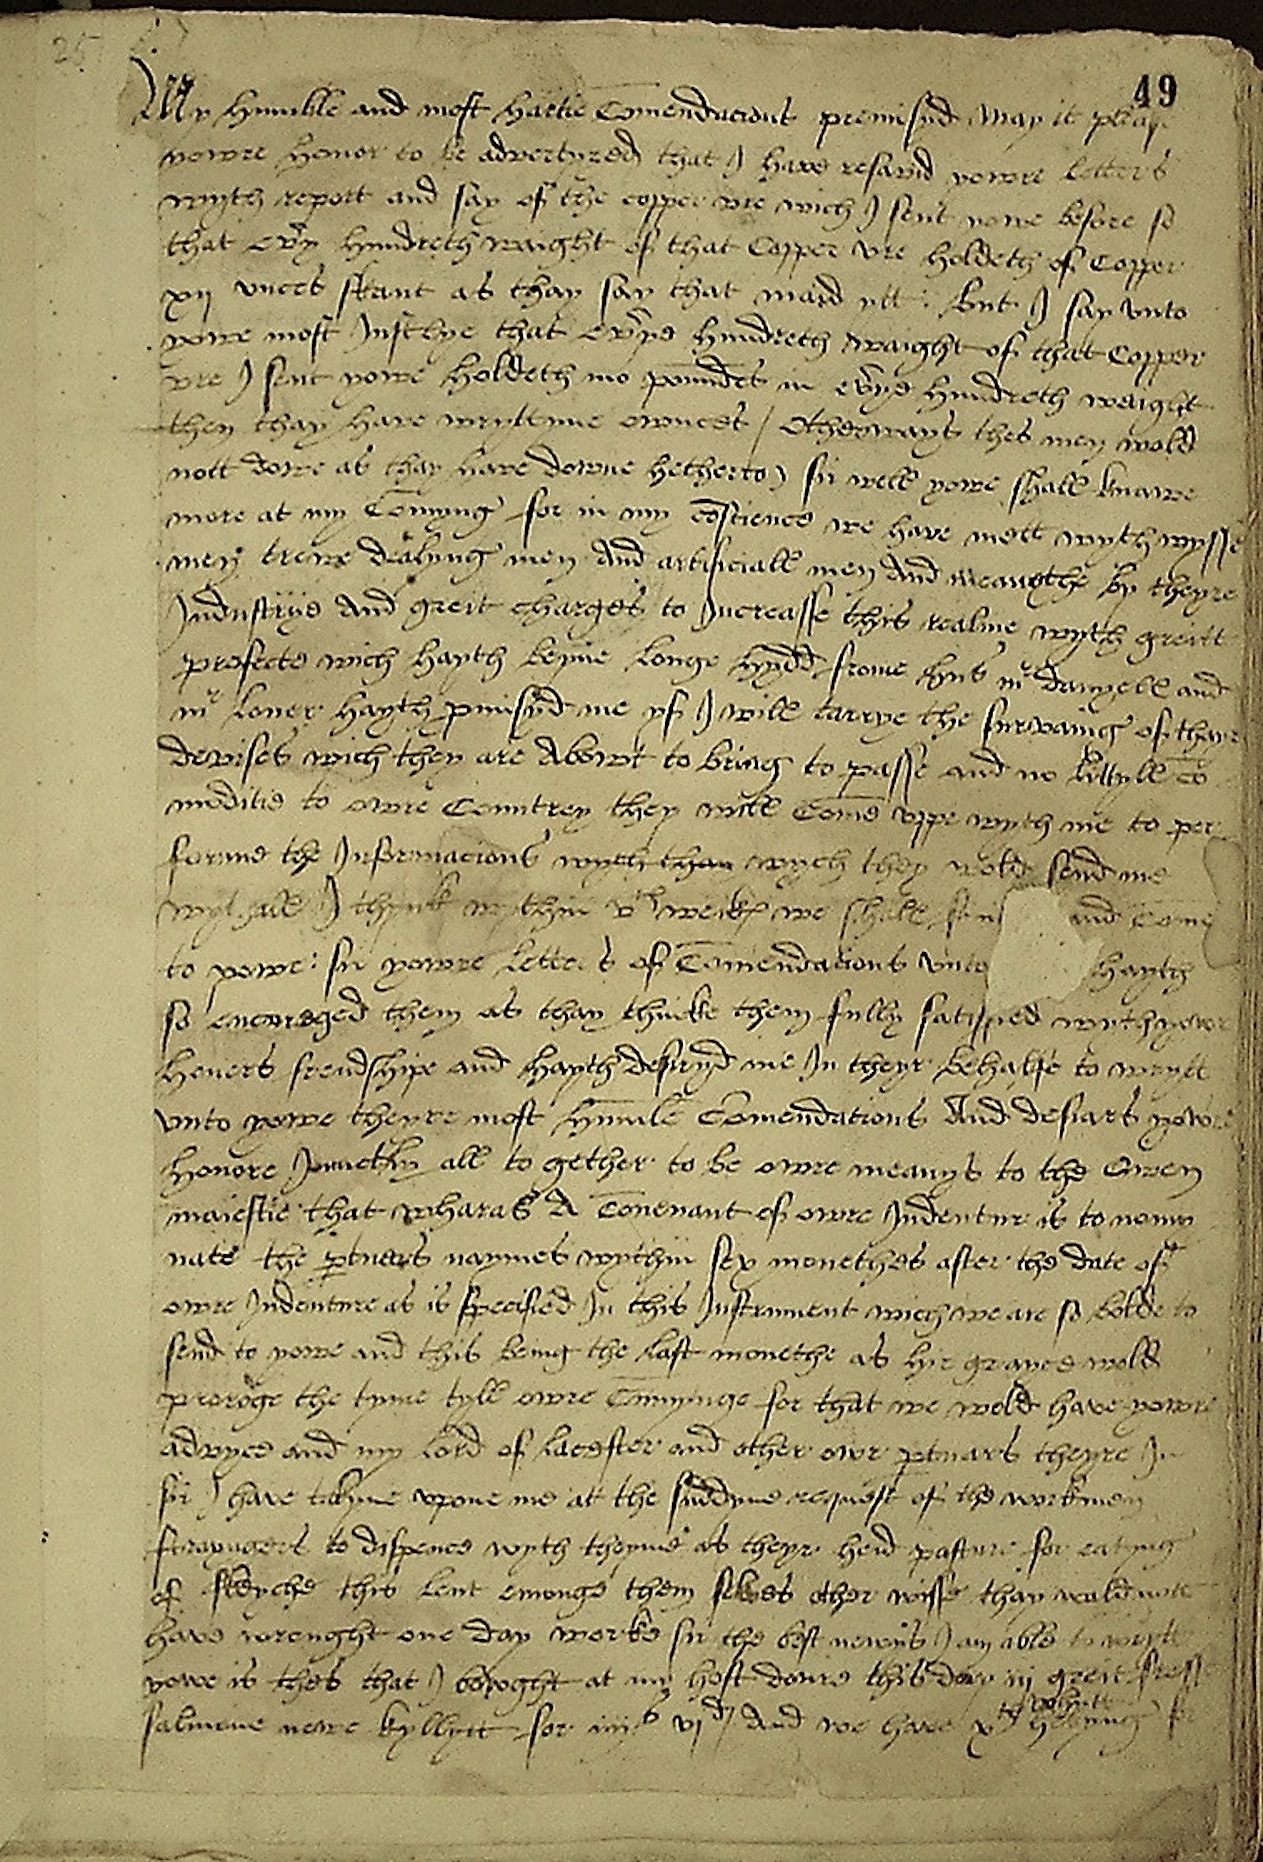 25
49
My humble and most hartie Comendacions premisyd May it please
yowre honor to be advertyzed that I have resavid yowre letters
wyth report and say of the copper vre wich I sent yowe before so
that evy hundreth waight of that Copper vre holdeth of Copper
xij vnces skant as thay say that maid ytt : But I say vnto
yowe most Justlye that evye hundreth waight of that Copper
vre I sent yowe holdeth mo poundes in evye hundreth weight
then thay have wryttine ownces / Otherways thes men wold
nott dowe as thay have downe hetherto) sir well yowe shall knawe
more at my Comyng for in my coscience we have mett wyth wysse
men trewe dealyng men And artificiall men And meanethe by theyre
Industrye And greit charges to Increasse this realme wyth greitt
profecte wich hayth beyne longe hydd frome hus mr danyell and
mr loner hayth pmisyd me yf I will tarrye the furvaing of thayre
devises wich they are Abowt to bring to passe and no littyll co
moditie to owre Countrey they will Come vppe wyth me to per
forme the Informacions wyth than wych they wold send me
wyt all I thynk wythin vth weikes we shall and Come
to yowe : sir yowre letters of Comendacions vnto hayth
so encoreged them as thay thinke them fully satisfied wyth yowre
honers frendshipe and hayth desiryd me In theyr behalfe to wrytt
vnto yowe theyre most humle Comendations And desiars yowre
honore Jointly all to gether to be owre meanys to the Qwen
maiestie that wharas A Covenant of owre Indentur is to nomi
nate the ptners naymes wythin sex monethes after the date of
owre Indenture as is specified In this Instrument wich we are so bolde to
send to yowe and this being the last monethe as hir grayce wold
proroge the tyme tyll owre Comyinge for that we wold have yowre
advyce and my lord of lacester and other owr ptnars theyre In
sir I have takyne vpone me at the suddyne request of the workmen
strayngers to dispence wyth theyme as theyr heid pasture for eatyng
of fleyche this lent emonge them selves other wisse thay wald nott
have wrought one day worke sir the best newys I am able to wrytt
yowe is thes that I bowght at my host dowre this day iij greit fresse
salmone newe kyllytt for iiijs vjd / And we have xten whytt helyng for